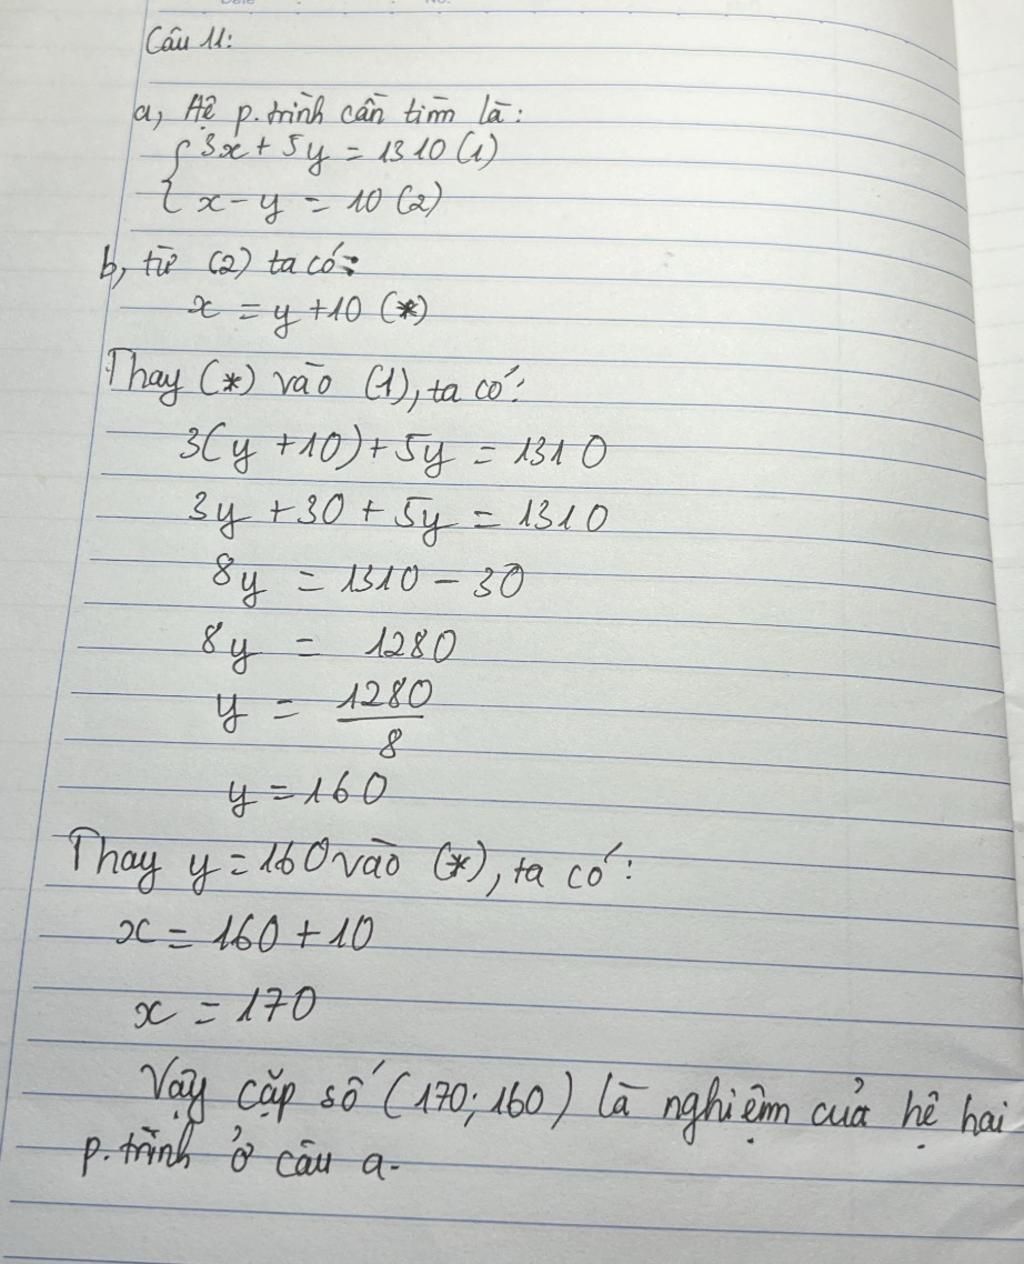 Câu 11:
a, Hệ p.trình cần tìm là:
{ 3x + 5y = 1310 (1)
x - y = 10 (2)
b, từ (2) ta có:
x = y + 10 (*)
Thay (*) vào (1), ta có:
3(y + 10) + 5y = 1310
3y + 30 + 5y = 1310
8y = 1310 - 30
8y = 1280
y = 1280/8
y = 160
Thay y = 160 vào (*), ta có:
x = 160 + 10
x = 170
Vậy cặp số (170; 160) là nghiệm của hệ hai
p.trình ở câu a.